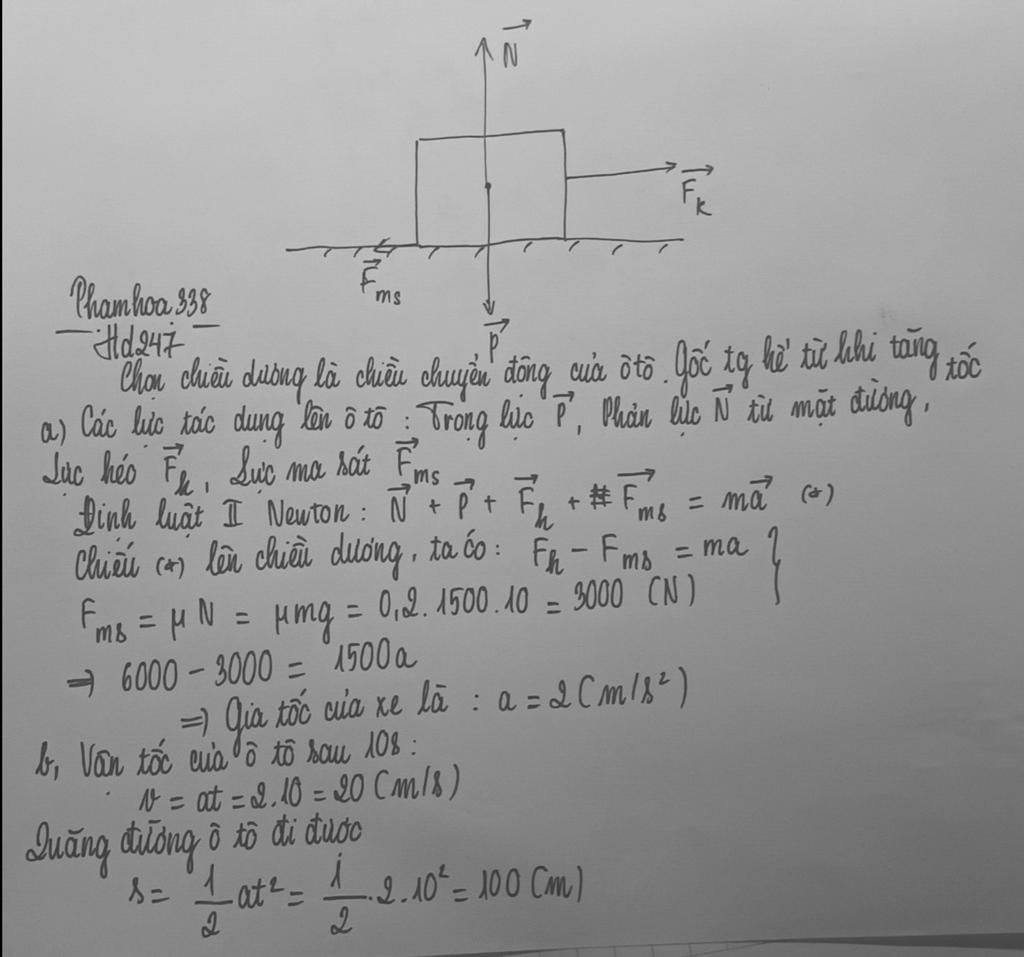 N
F_k
F_ms
P
Phamhoa338
Hd247
Chọn chiều dương là chiều chuyển động của ô tô. Gốc tg kể từ khi tăng tốc
a) Các lực tác dụng lên ô tô : Trọng lực P⃗, Phản lực N⃗ từ mặt đường,
Lực kéo F⃗_k, Lực ma sát F⃗_ms
Định luật II Newton: N⃗ + P⃗ + F⃗_k + F⃗_ms = ma⃗ (*)
Chiếu (*) lên chiều dương, ta có: F_k - F_ms = ma
F_ms = μN = μmg = 0,2.1500.10 = 3000 (N)
⇒ 6000 - 3000 = 1500a
⇒ Gia tốc của xe là : a = 2 (m/s²)
b, Vận tốc của ô tô sau 10s :
v = at = 2.10 = 20 (m/s)
Quãng đường ô tô đi được
s = 1/2 at² = 1/2 .2.10² = 100 (m)